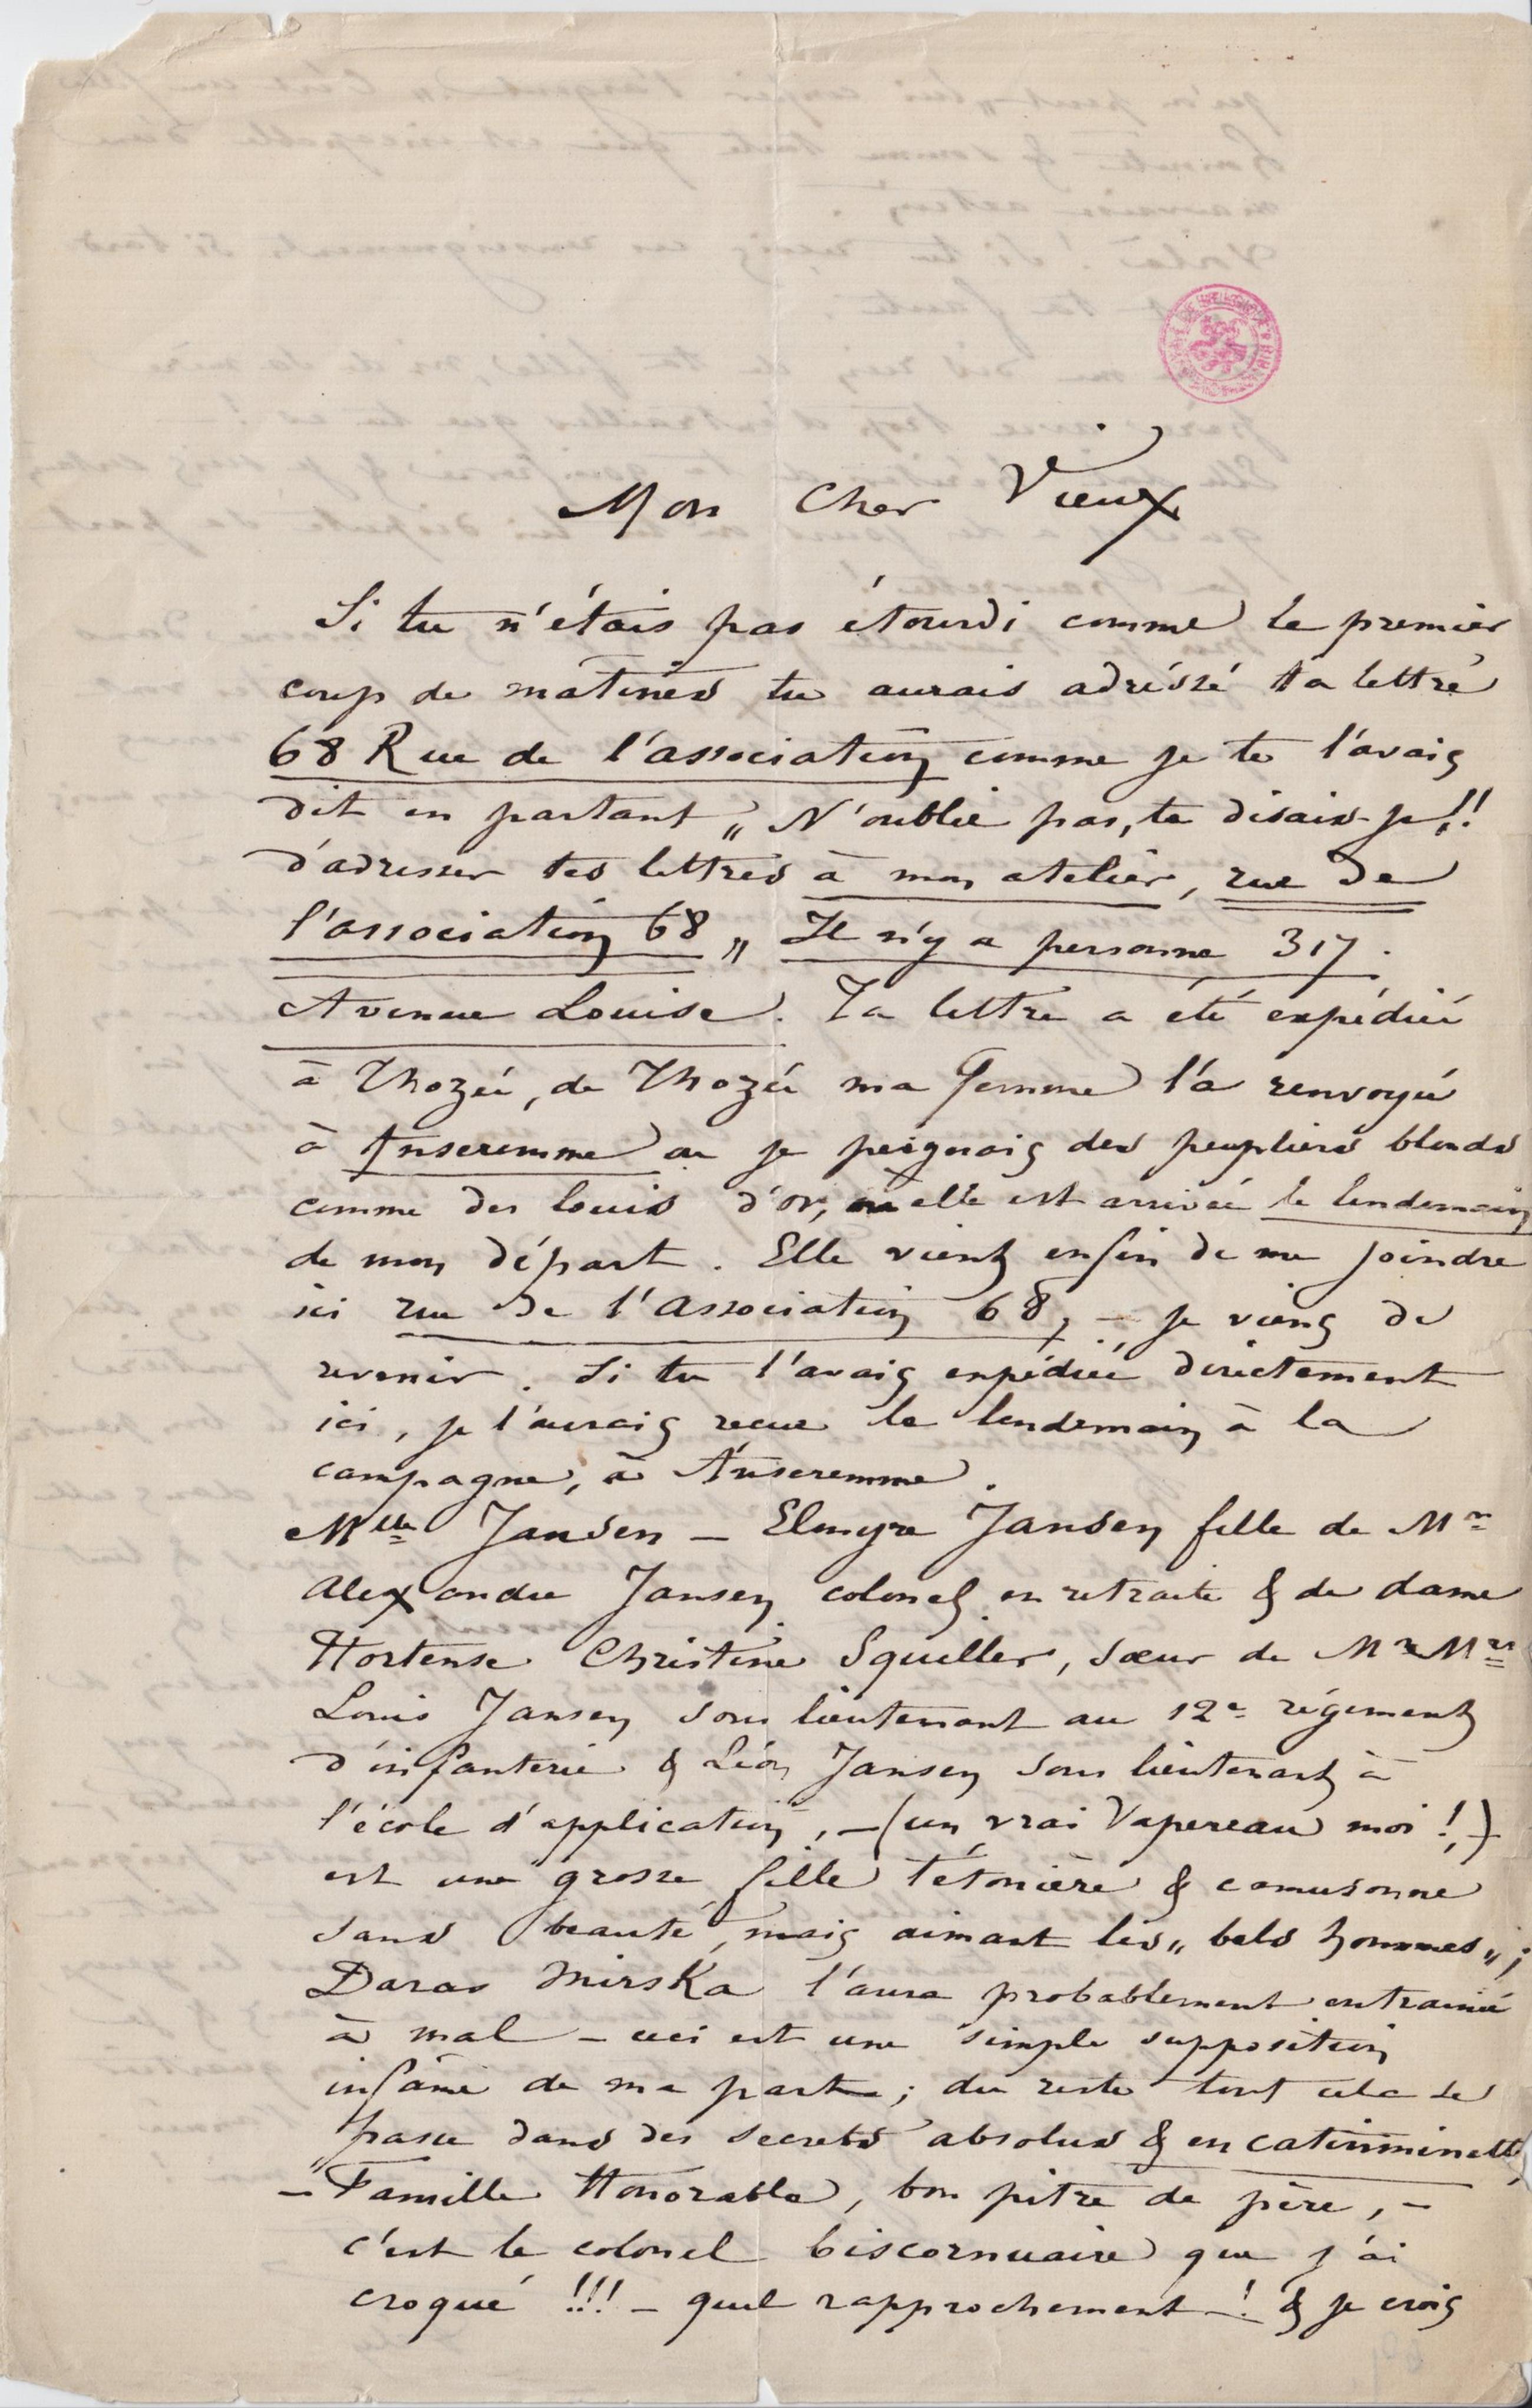 Mon Cher Vieux
Si tu n'étais pas étourdi comme le premier
coup de matines tu aurais adréssé ta lettre
68 Rue de l'association comme je te l'avais
dit en partant „ N'oublie pas, te disais-je,!!
d'adresser tes lettres à mon atelier, rue de
l'association 68 „ Il n'y a personne 317.
Avenue Louise. Ta lettre a été expédiée
à Thozée, de Thozée ma femme l'a renvoyée
à Anseremme ou je peignais des peupliers blonds
comme des louis d'or, elle est arrivée le lendemain
de mon départ. Elle vient enfin de me joindre
ici rue de l'Association 68, – je viens de
revenir. Si tu l'avais expédiée directement
ici, je l'aurais recue le lendemain à la
campagne, à Anseremme.
Mlle Jansen – Elmyre Jansen fille de Mr
Alexandre Jansen colonel en retraite & de dame
Hortense Christine Squiller, sœur de Mr Mrs
Louis Jansen sous lieutenant au 12e régiment
d'infanterie & Léon Jansen sous lieutenant à
l'école d'application, – (un vrai Vapereau moi !,)
est une grosse fille tétonière & camusonne
sans beauté, mais aimant les „ bels hommes „ ;
Daras Mirska l'aura probablement entrainée
à mal – ceci est une simple supposition
infâme de ma part ; du reste tout cela se
passe dans des secrets absolus & en catiminette
– Famille Honorable, bon pitre de père, –
c'est le colonel biscornuaire que j'ai
croqué !!! – quel rapprochement – ! & je crois